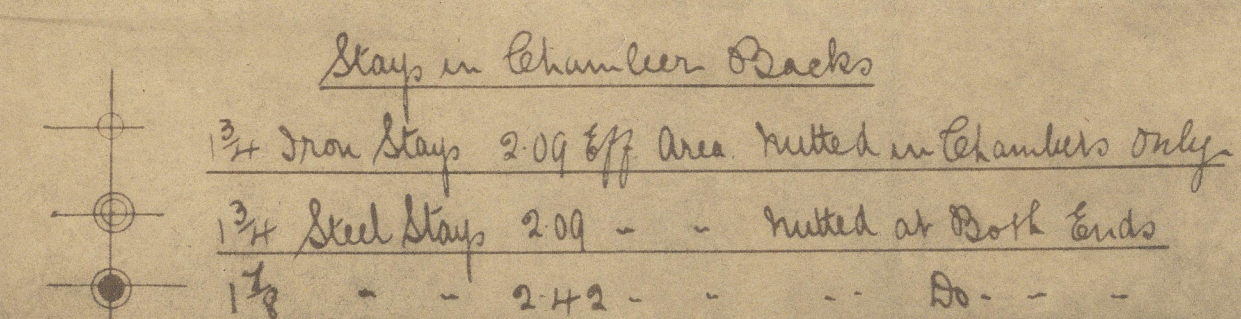 Stays in Chamber Backs
1 3/4 Iron Stays 2.09 Eff Area. Nutted in Chambers only
1 3/4 Steel Stays 2.09 " " Nutted at Both Ends
1 7/8 " " 2.42 " " " " Do - " "